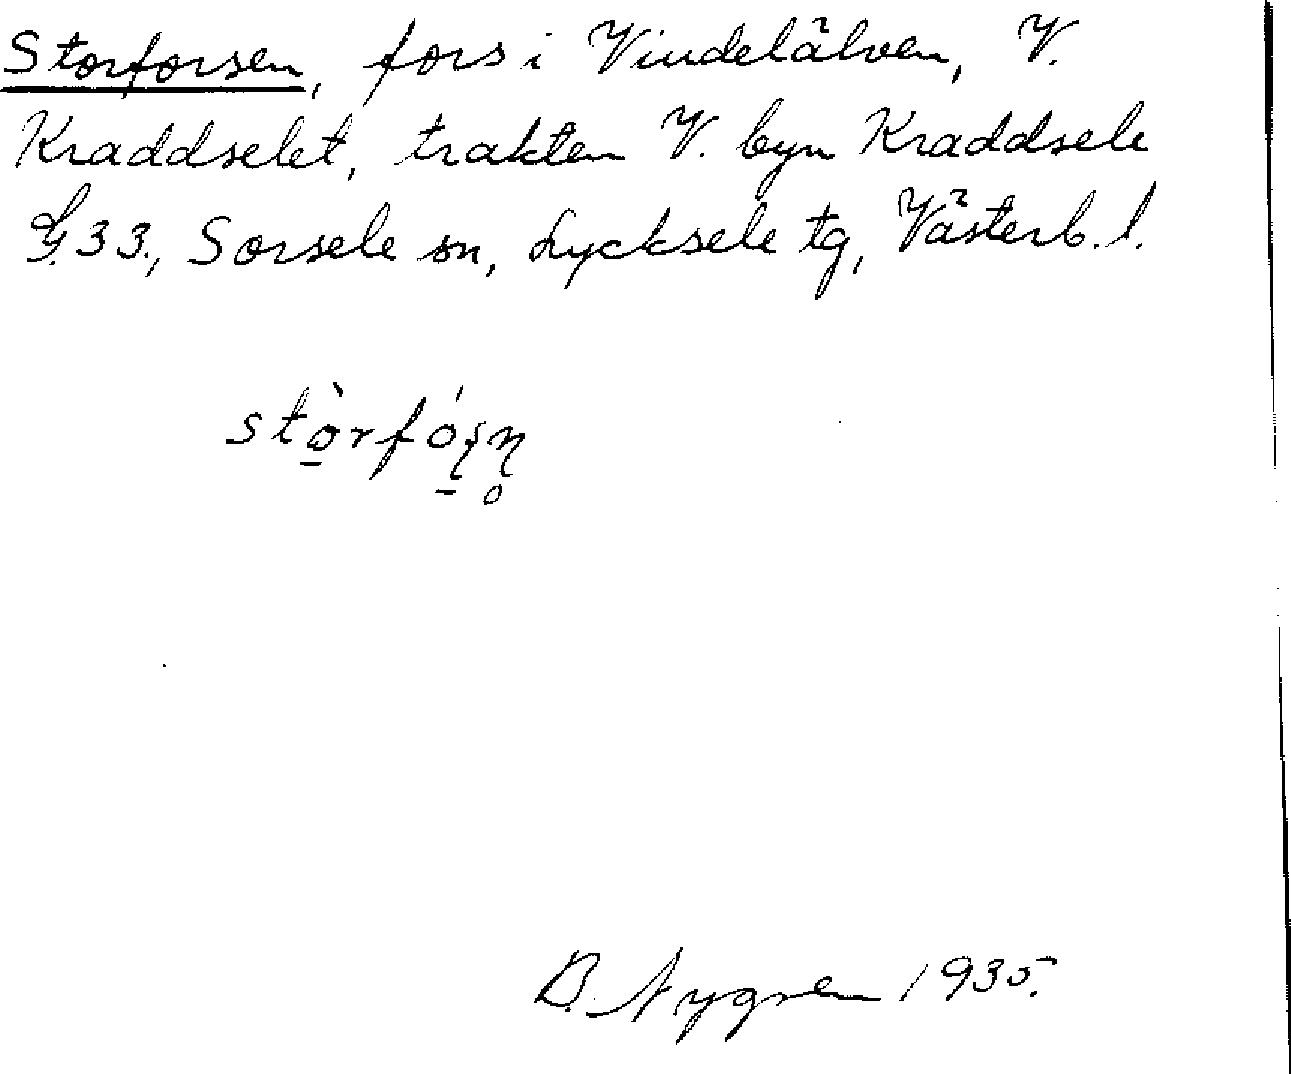 Storforsen, fors i Vindelälven, V.
Kraddselet, trakten V. byn Kraddsele
G.33., Sorsele sn, Lycksele tg, Västerb. l.
stò̱rfó̱ʂn̥
B. Nygren 1935.